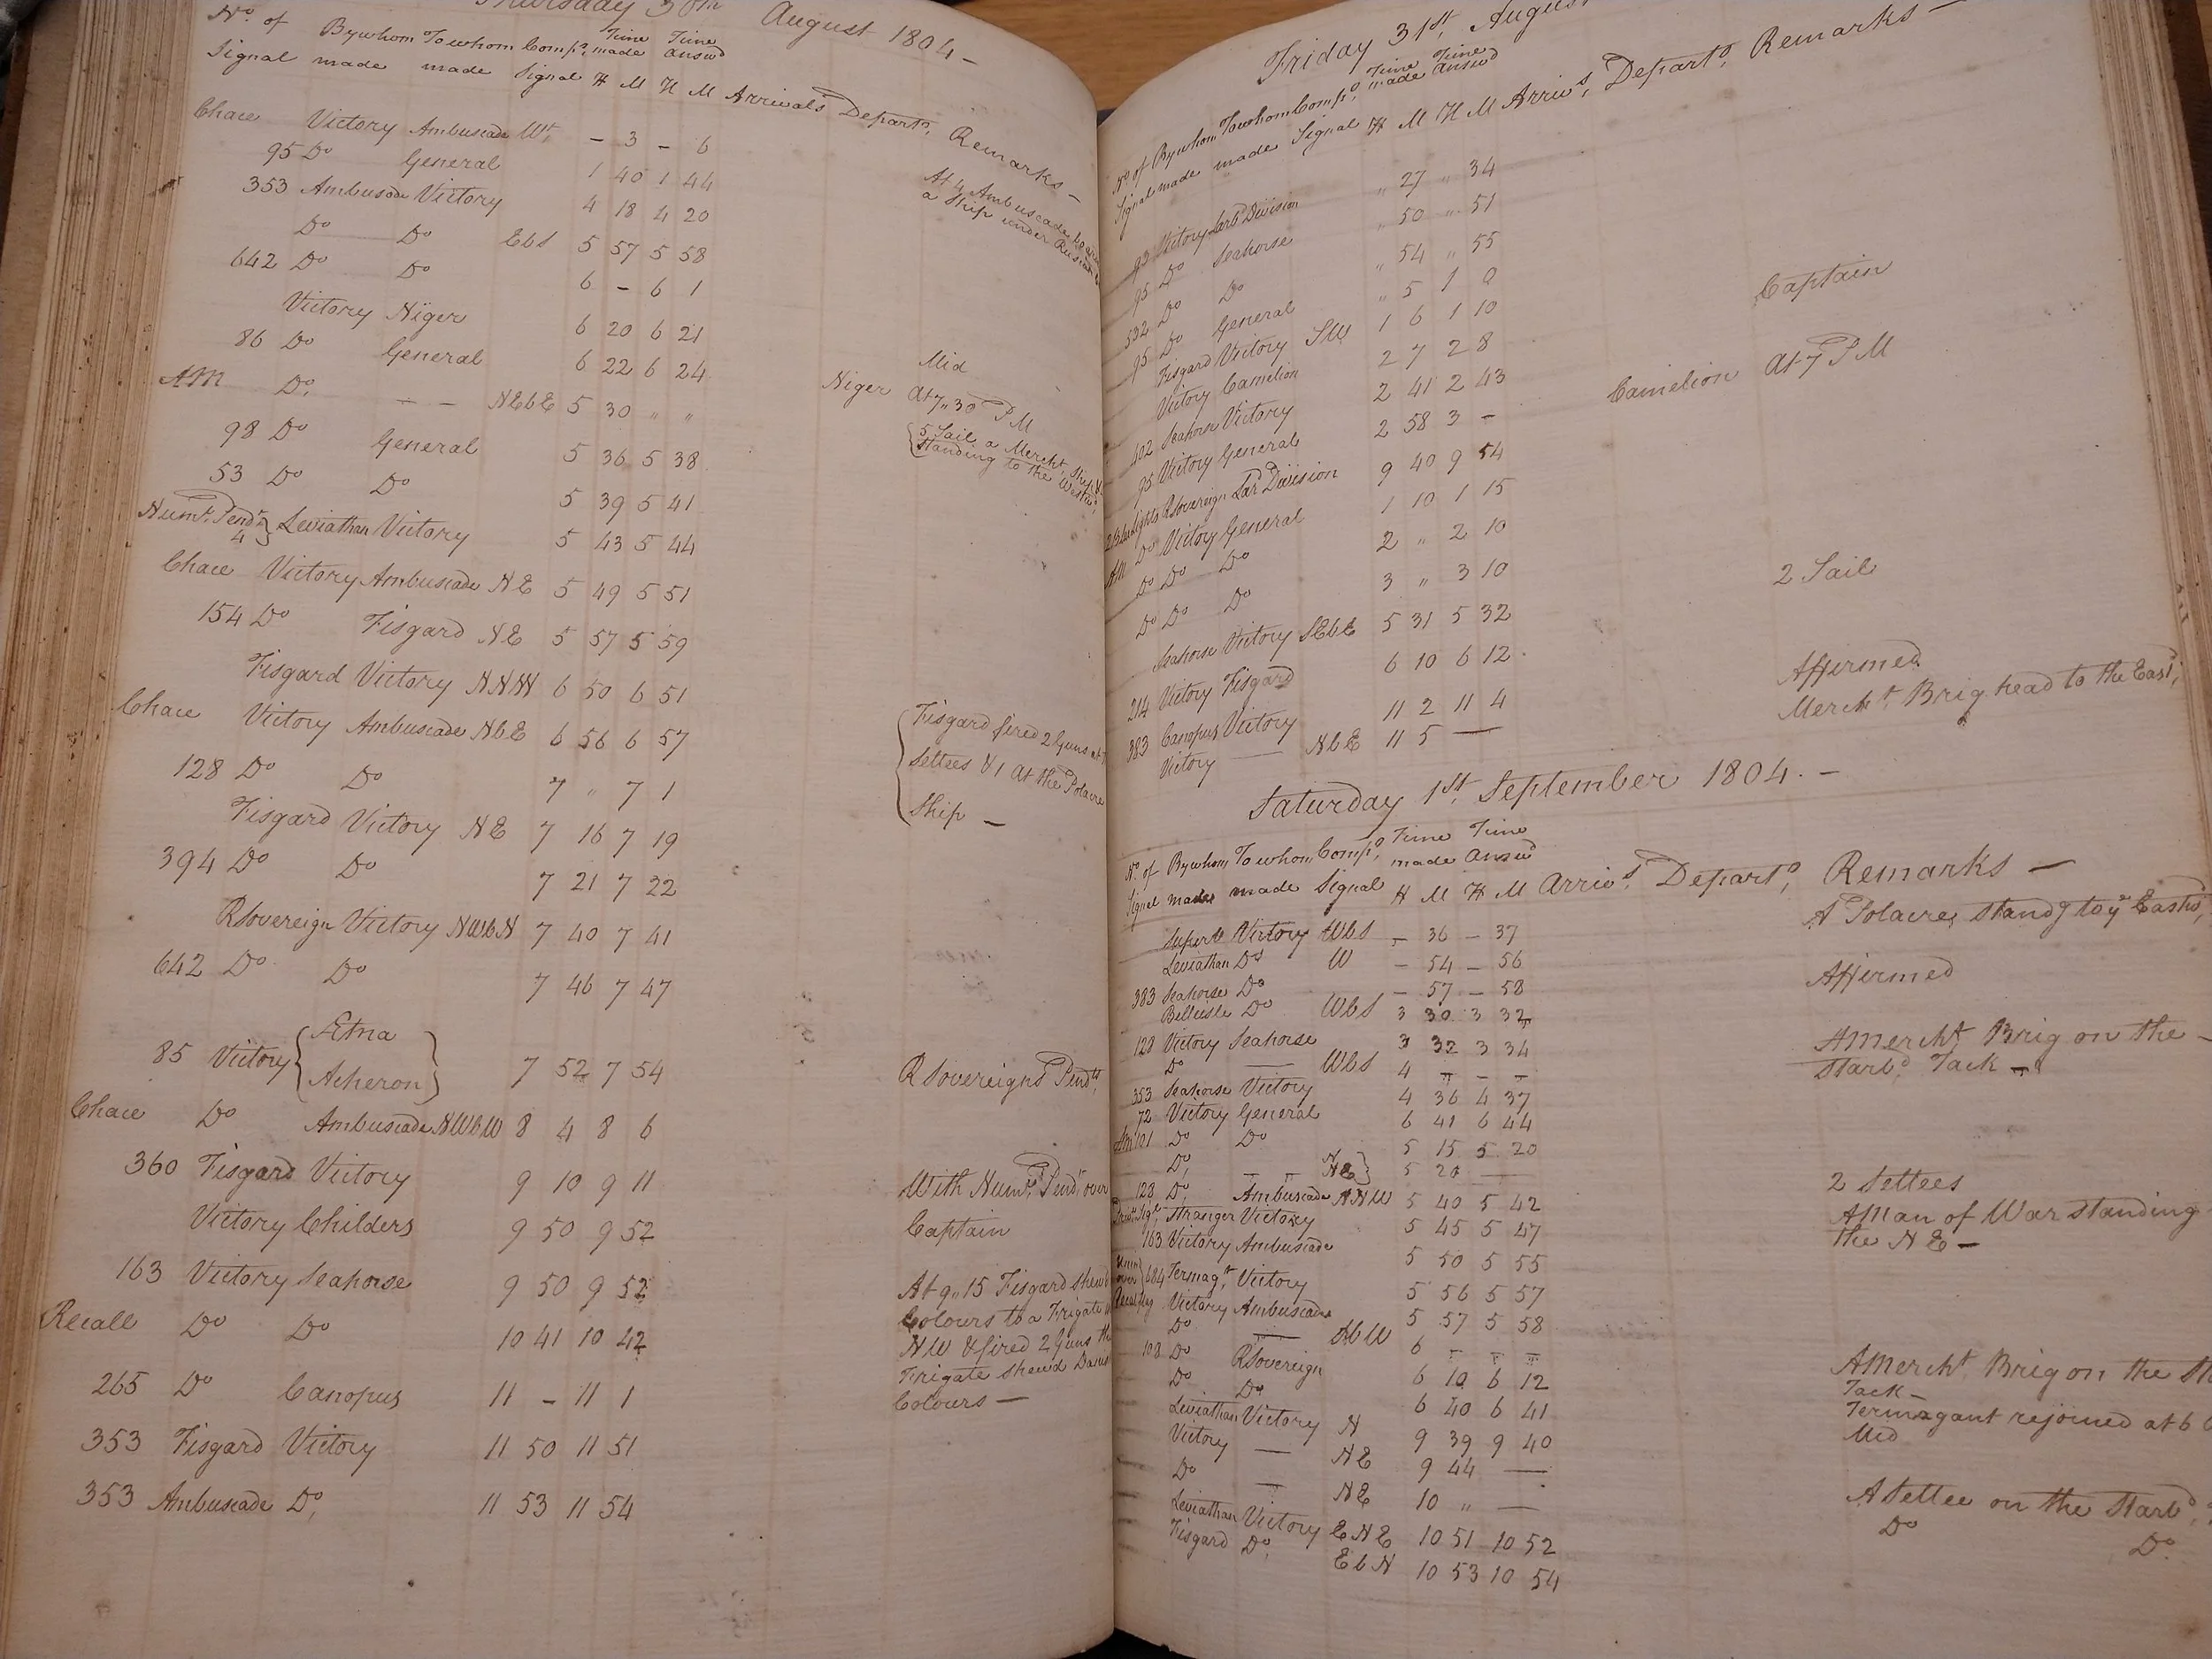 Thursday 30th August 1804 –
No. of By whom To whom Comps. Time Time
Signal made made Signal made answd
H M H M Arrivals Departs. Remarks –
Chace Victory Ambuscade Wt. – 3 – 6
95 Do General 1 40 1 44
353 Ambuscade Victory 4 18 4 20 At 4 Ambuscade
a Ship under
Do Do EbS 5 57 5 58
642 Do Do 6 – 6 1
Victory Niger 6 20 6 21 Mid
86 Do General 6 22 6 24 Niger At 7,, 30 PM
AM Do, – – NEbE 5 30 " " 5 Sail a Mercht. Ship
standing to the Westwd.
98 Do General 5 36 5 38
53 Do Do 5 39 5 41
Numl. Pendt. 4 } Leviathan Victory 5 43 5 44
Chace Victory Ambuscade NE 5 49 5 51
154 Do Fisgard NE 5 57 5 59
Fisgard Victory NNW 6 50 6 51 Fisgard fired 2 Guns at
Chace Victory Ambuscade NbE 6 56 6 57 Settees & 1 at the Polacre
128 Do Do 7 " 7 1 Ship –
Fisgard Victory NE 7 16 7 19
394 Do Do 7 21 7 22
RSovereign Victory NWbN 7 40 7 41
642 Do Do 7 46 7 47
85 Victory { Ætna
Acheron } 7 52 7 54 RSovereigns Pendts.
Chace Do Ambuscade NWbW 8 4 8 6
360 Fisgard Victory 9 10 9 11 With Numl. Pendt. over
Victory Childers 9 50 9 52 Captain
163 Victory Seahorse 9 50 9 52 At 9,, 15 Fisgard shewd
Recall Do Do 10 41 10 42 Colours to a Frigate
NW & fired 2 Guns the
265 Do Canopus 11 – 11 1 Frigate shewd Danish
Colours –
353 Fisgard Victory 11 50 11 51
353 Ambuscade Do, 11 53 11 54
Friday 31st, August
No of By whom To whom Compd. Time Time
Signal made made Signal made answd
H M H M Arrivs. Departs. Remarks –
93 Victory Larbd Division " 27 " 34
95 Do Seahorse " 50 " 51
532 Do Do " 54 " 55
95 Do General " 5 1 8
Fisgard Victory SW 1 6 1 10
Victory Camelion 2 7 2 8 Captain
402 Seahorse Victory 2 41 2 43
95 Victory General 2 58 3 – Camelion At 7 PM
2 Blue Lights RSovereign Lar Division 9 40 9 54
AM Do Victory General 1 10 1 15
Do Do Do 2 " 2 10
Do Do Do 3 " 3 10
Seahorse Victory SEbE 5 31 5 32 2 Sail
214 Victory Fisgard 6 10 6 12
383 Canopus Victory 11 2 11 4 Affirmed
Victory — NbE 11 5 — Mercht. Brig head to the Eastd,
Saturday 1st, September 1804. –
No. of By whom To whom Compd, Time Time
Signal made made Signal made answd
H M H M Arrivs. Departs, Remarks –
Superb Victory WbS – 36 – 37 A Polacre, standg to ye Eastwd,
Leviathan Do W – 54 – 56
383 Seahorse Do – 57 – 58 Affirmed
Belleisle Do WbS 3 30 3 32
128 Victory Seahorse 3 32 3 34
Do — WbS 4 – – – A Mercht Brig on the –
Starbd, Tack –
353 Seahorse Victory 4 36 4 37
72 Victory General 6 41 6 44
AM 101 Do Do 5 15 5 20
Do, – – NE } 5 20 — 2 Settees
128 Do, Ambuscade NNW 5 40 5 42 A Man of War standing
the NE –
Privt. Sigl. Stranger Victory 5 45 5 47
163 Victory Ambuscade 5 50 5 55
Union over 684 Termagt. Victory 5 56 5 57
Recall Victory Ambuscade 5 57 5 58
Do — NbW 6 – – – A Mercht, Brig on the
Tack –
108 Do RSovereign 6 10 6 12 Termagant rejoined at 6
Do Do 6 40 6 41 Mid
Leviathan Victory N 9 39 9 40
Victory — NE 9 44 — A Settee on the Starbd,
Do — NE 10 " — Do Do.
Leviathan Victory ENE 10 51 10 52
Fisgard Do, EbN 10 53 10 54